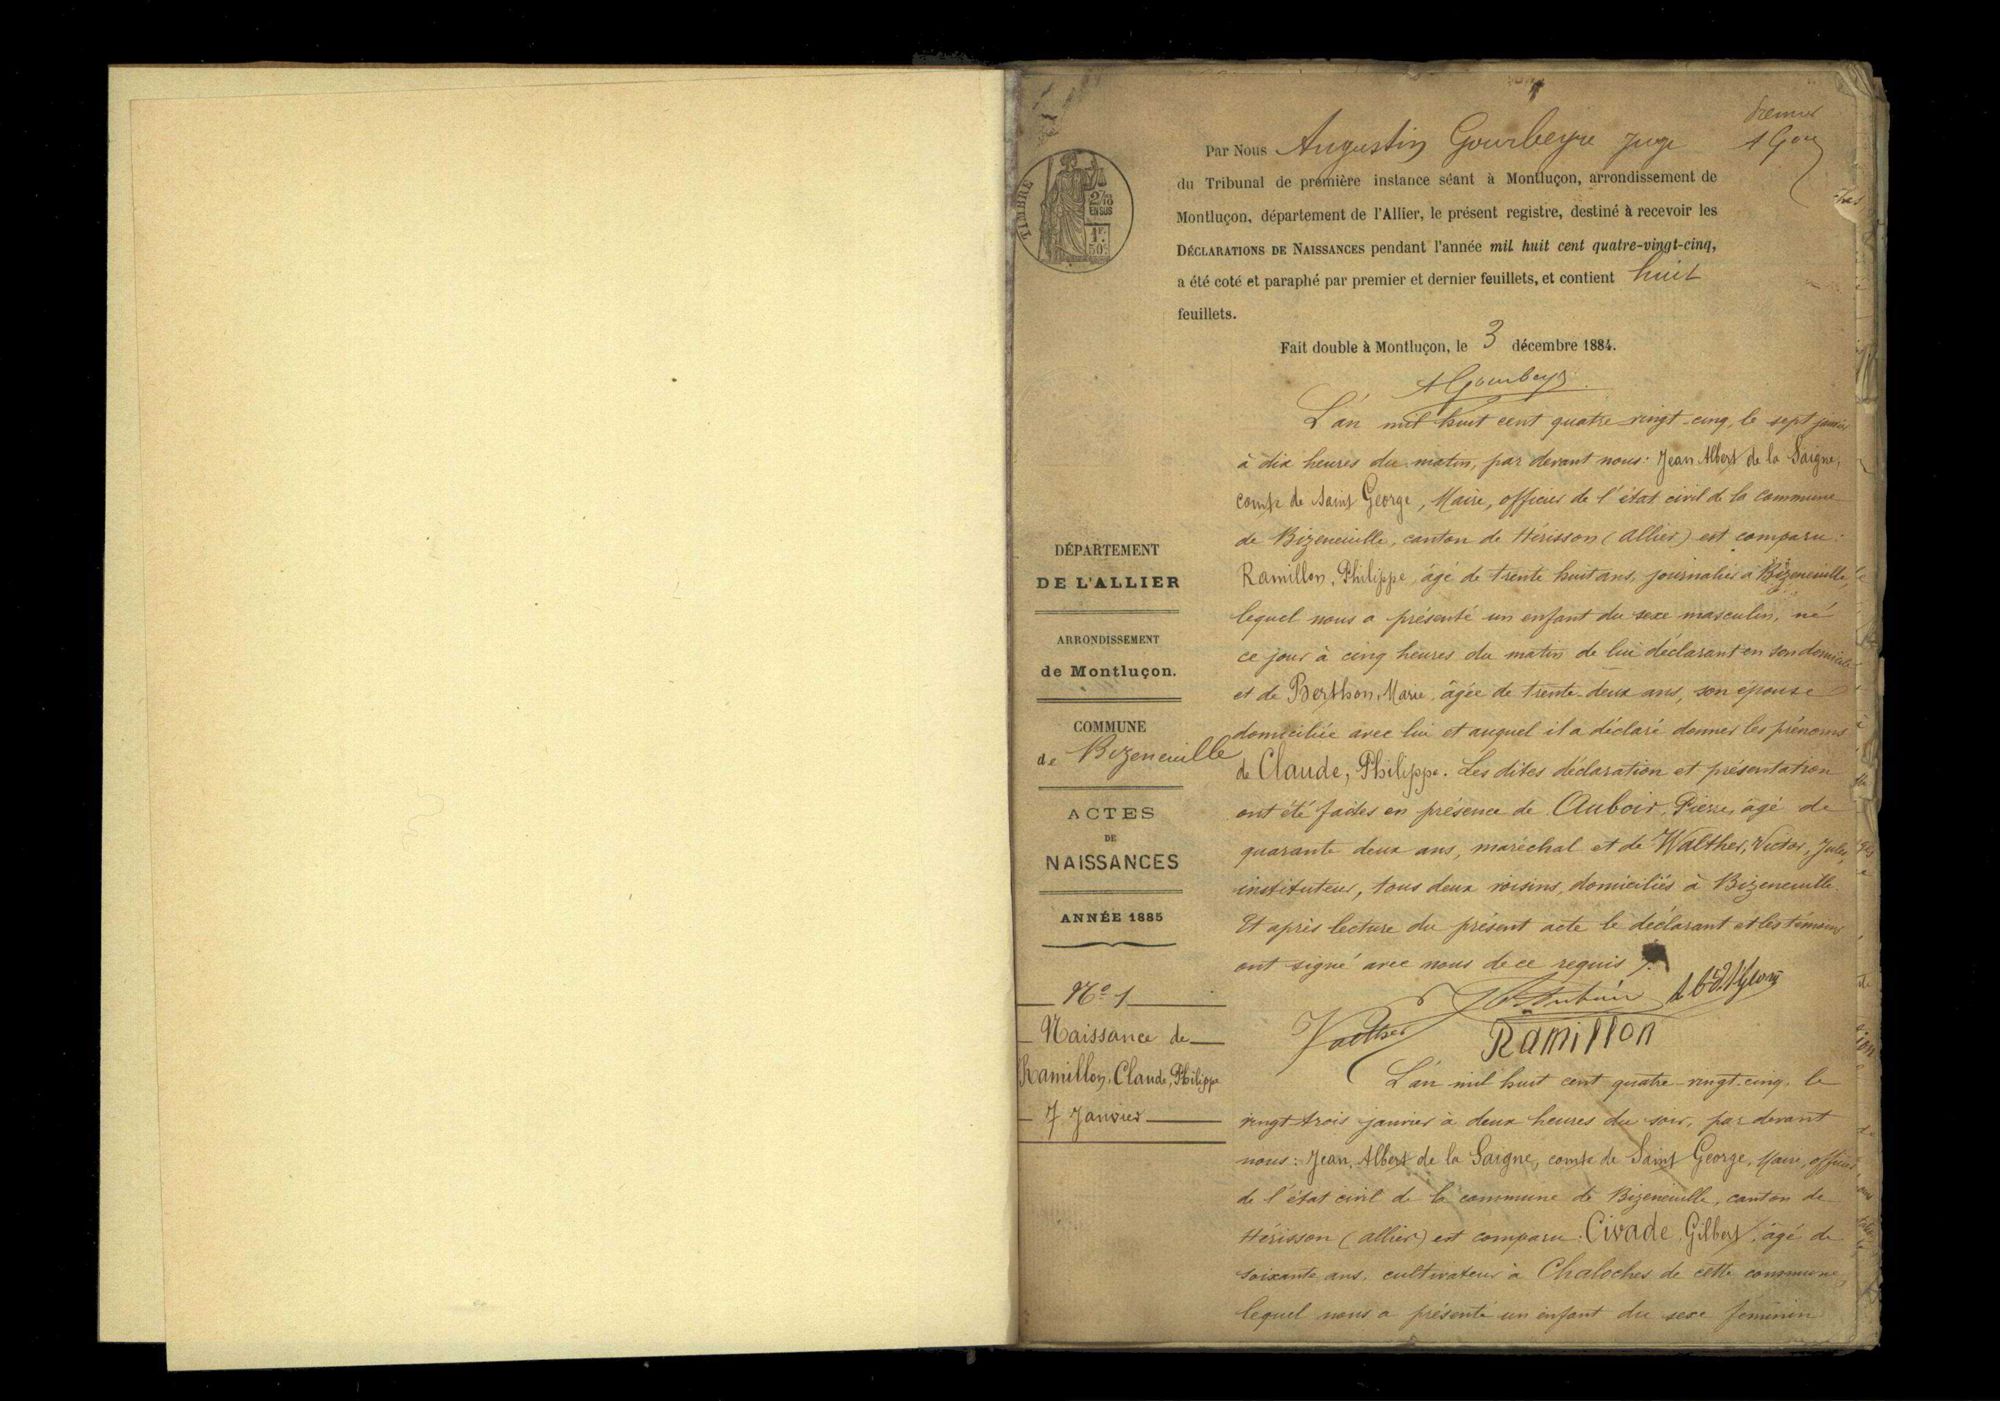 Premier
A Gou
TIMBRE
2/10
EN SUS
1F
50c
Par Nous Augustin Gourbeyre Juge
du Tribunal de première instance séant à Montluçon, arrondissement de
Montluçon, département de l'Allier, le présent registre, destiné à recevoir les
DÉCLARATIONS DE NAISSANCES pendant l'année mil huit cent quatre-vingt-cinq,
a été coté et paraphé par premier et dernier feuillets, et contient huit
feuillets.
Fait double à Montluçon, le 3 décembre 1884.
A Gourbeyre
DÉPARTEMENT
DE L'ALLIER
ARRONDISSEMENT
de Montluçon.
COMMUNE
de Bizeneuille
ACTES
DE
NAISSANCES
ANNÉE 1885
No 1
Naissance de
Ramillon, Claude, Philippe
7 Janvier
L'an mil huit cent quatre vingt-cinq, le sept janvier
à dix heures du matin, par devant nous: Jean Albert de la Saigne,
comte de Saint George, Maire, officier de l'état civil de la commune
de Bizeneuille, canton de Hérisson (Allier) est comparu:
Ramillon, Philippe, âgé de trente huit ans, journalier à Bizeneuille,
lequel nous a présenté un enfant du sexe masculin, né
ce jour à cinq heures du matin de lui déclarant en son domicile
et de Berthon, Marie, âgée de trente-deux ans, son épouse
domiciliée avec lui et auquel il a déclaré donner les prénoms
de Claude, Philippe. Les dites déclaration et présentation
ont été faites en présence de Auboir, Pierre, âgé de
quarante deux ans, maréchal et de Walther, Victor, Jules,
instituteur, tous deux voisins, domiciliés à Bizeneuille.
Et après lecture du présent acte le déclarant et les témoins
ont signé avec nous de ce requis
Walther
Ramillon
L'an mil huit cent quatre-vingt-cinq, le
vingt trois janvier à deux heures du soir, par devant
nous: Jean, Albert de la Saigne, comte de Saint George, Maire, officier
de l'état civil de la commune de Bizeneuille, canton de
Hérisson (Allier) est comparu: Civade, Gilbert, âgé de
soixante ans, cultivateur à Chaloches de cette commune,
lequel nous a présenté un enfant du sexe féminin